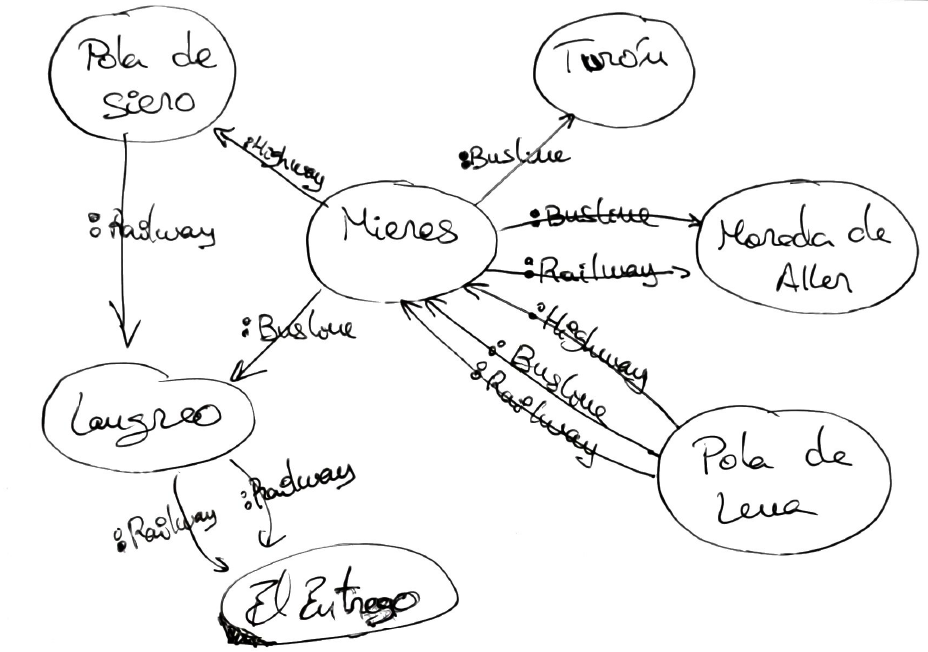 Pola de
Siero
Turón
:Highway
:Busline
:Railway
Mieres
:Busline
Moreda de
Aller
:Railway
:Busline
:Highway
:Busline
:Railway
Langreo
Pola de
Lena
:Railway
:Railway
El Entrego